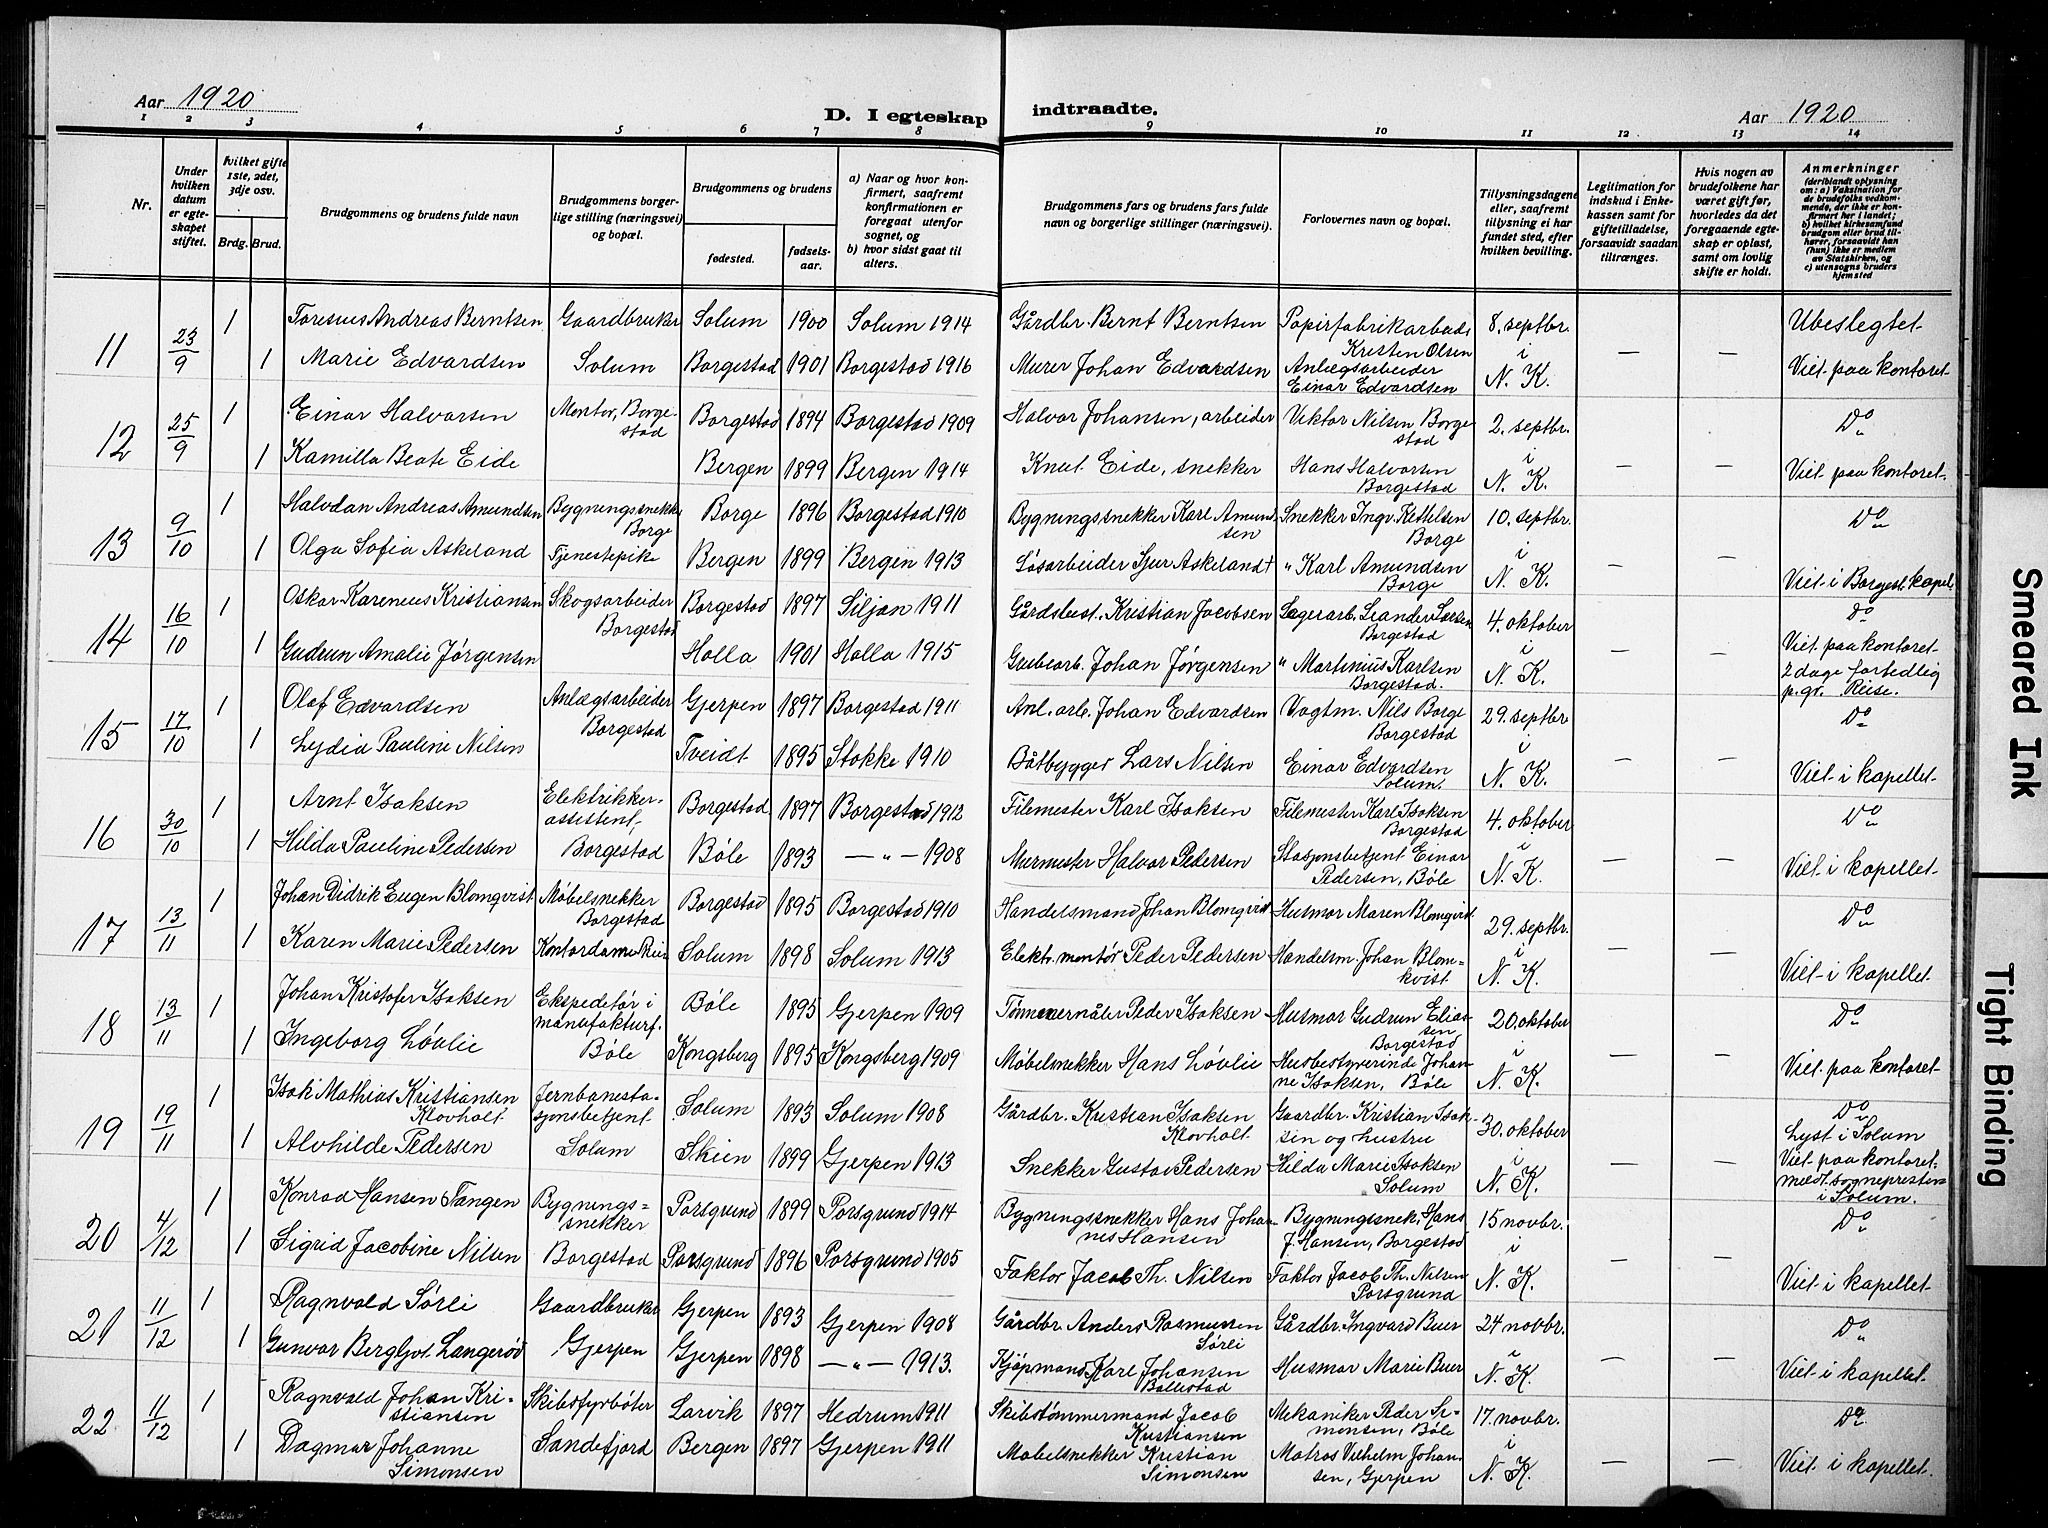 Aar 1920
D. I egteskap indtraadte.
Aar 1920
1 2 3 4 5 6 7 8 9 10 11 12 13 14
Nr.
Under hvilken datum er egteskapet stiftet.
hvilket gifte 1ste, 2det, 3dje osv.
Brdg. Brud.
Brudgommens og brudens fulde navn
Brudgommens borgerlige stilling (næringsvei) og bopæl.
Brudgommens og brudens
fødested.
fødselsaar.
a) Naar og hvor konfirmert, saafremt konfirmationen er foregaat utenfor sognet, og
b) hvor sidst gaat til alters.
Brudgommens fars og brudens fars fulde navn og borgerlige stillinger (næringsvei).
Forlovernes navn og bopæl.
Tillysningsdagene eller, saafremt tillysning ei har fundet sted, efter hvilken bevilling.
Legitimation for indskud i Enkekassen samt for giftetilladelse, forsaavidt saadan tiltrænges.
Hvis nogen av brudefolkene har været gift før, hvorledes da det foregaaende egteskap er opløst, samt om lovlig skifte er holdt.
Anmerkninger
(deriblandt oplysning om: a) Vaksination for de brudefolks vedkommende, der ikke er konfirmert her i landet; b) hvilket kirkesamfund brudgom eller brud tilhører, forsaavidt han (hun) ikke er medlem av Statskirken, og c) utensogns bruders hjemsted
11 23/9 1 Toresius Andreas Berntsen Gaardbruker Solum 1900 Solum 1914 Gårdbr. Bernt Berntsen Papirfabrikarbeid. Kristen Olsen 8. septbr. Ubeslegtet
1 Marie Edvardsen Solum Borgestad 1901 Borgestad 1916 Murer Johan Edvardsen Anlægsarbeider Einar Edvardsen i N. K. — — Viet paa kontoret
12 25/9 1 Einar Halvorsen Montør, Borgestad Borgestad 1894 Borgestad 1909 Halvor Johansen, arbeider Viktor Nilsen Borgestad 2. septbr. Do
1 Kamilla Beate Eide Bergen 1899 Bergen 1914 Knut Eide, snekker Hans Halvorsen Borgestad i N. K. — — Viet paa kontoret.
13 9/10 1 Halvdan Andreas Amundsen Bygningssnekk. Borge Borge 1896 Borgestad 1910 Bygningssnekker Karl Amundsen Snekker Ingv. Kettelsen Borge 10. septbr. Do
1 Olga Sofia Askeland Tjenestepike Bergen 1899 Bergen 1913 Løsarbeider Sjur Askeland + " Karl Amundsen Borge i N. K. — — Viet i Borgest. kapel
14 16/10 1 Oskar Karenius Kristiansen Skogsarbeider Borgestad Borgestad 1897 Siljan 1911 Gårdsbest. Kristian Jacobsen Lagerarb. Leander Larsen Borgestad 4. oktober Do
1 Gudrun Amalie Jørgensen Holla 1901 Holla 1915 Grubearb. Johan Jørgensen " Martinius Karlsen Borgestad. i N. K. — — Viet paa kontoret 2 dage fortidlig p.gr. Reise.
15 17/10 1 Olaf Edvardsen Anlægsarbeider Borgestad Gjerpen 1897 Borgestad 1911 Anl. arb. Johan Edvardsen Vagtm. Nils Borge Borgestad 29. septbr Do
1 Lydia Pauline Nilsen Tveidt 1895 Stokke 1910 Båtbygger Lars Nilsen Einar Edvardsen Solum. i N. K. — — Viet i kapellet
16 30/10 1 Arnt Isaksen Elektrikkerassistent, Borgestad 1897 Borgestad 1912 Filemester Karl Isaksen Filemester Karl Isaksen Borgestad 4. oktober Do
1 Hilda Pauline Pedersen Borgestad Bøle 1893 — " — 1908 Murmester Halvor Pedersen Stasjonsbetjent Einar Pedersen, Bøle i N. K. — — Viet i kapellet
17 13/11 1 Johan Didrik Eugen Blomqvist Møbelsnekker Borgestad Borgestad 1895 Borgestad 1910 Handelsmand Johan Blomqvist Husmor Maren Blomqvist 29. septbr. Do
1 Karen Marie Pedersen Kontordame Solum 1898 Solum 1913 Elektr. montør Peder Pedersen Handelsm. Johan Blomkvist i N. K. — — Viet i kapellet
18 13/11 1 Johan Kristofer Isaksen Ekspeditør i manufakturf. Bøle 1895 Gjerpen 1909 Tønnemåler Peder Isaksen Husmor Gudrun Eliassen Borgestad 20. oktober Do
1 Ingeborg Løvlie Bøle Kongsberg 1895 Kongsberg 1909 Møbelsnekker Hans Løvlie Husbestyrerinde Johanne Isaksen, Bøle i N. K. — — Viet paa kontoret
19 19/11 1 Isak Mathias Kristiansen Klovholt Jernbanestasjonsbetjent Solum 1893 Solum 1908 Gårdbr. Kristian Isaksen Klovholt Gaardbr. Kristian Isaksen og hustru 30. oktober Do Lyst i Solum
1 Alvhilde Pedersen Solum Skien 1899 Gjerpen 1913 Snekker Gustav Pedersen Hilda Marie Isaksen Solum i N. K. — — Viet paa kontoret. meldt sogneprესten i Solum.
20 4/12 1 Konrad Hansen Tangen Bygningssnekker Porsgrund 1899 Porsgrund 1914 Bygningssnekker Hans Johannes Hansen Bygningssnek. Hans J. Hansen, Borgestad 15 novbr. Do
1 Sigrid Jacobine Nilsen Borgestad Porsgrund 1896 Porsgrund 1905 Faktor Jacob Th. Nilsen Faktor Jacob Th. Nilsen Porsgrund i N. K. — — Viet i kapellet
21 11/12 1 Ragnvald Sørli Gaardbruker Gjerpen 1893 Gjerpen 1908 Gårdbr. Anders Rasmussen Sørli Gårdbr. Ingvard Buer 24 novbr. Do
1 Gunvor Bergljot Langerød Gjerpen Gjerpen 1898 — " — 1913. Kjøpmand Karl Johansen Ballestad Husmor Marie Buer i N. K. — — Viet i kapellet
22 11/12 1 Ragnvald Johan Kristiansen Skibsfyrbøter Larvik 1897 Hedrum 1911 Skibstømmermand Jacob Kristiansen Mekaniker Peder Simonsen, Bøle 17. novbr. Do
1 Dagmar Johanne Simonsen Sandefjord Bergen 1897 Gjerpen 1911 Møbelsnekker Kristian Simonsen Matros Vilhelm Johansen, Gjerpen i N. K. — — Viet i kapellet.
Smeared Ink
Tight Binding